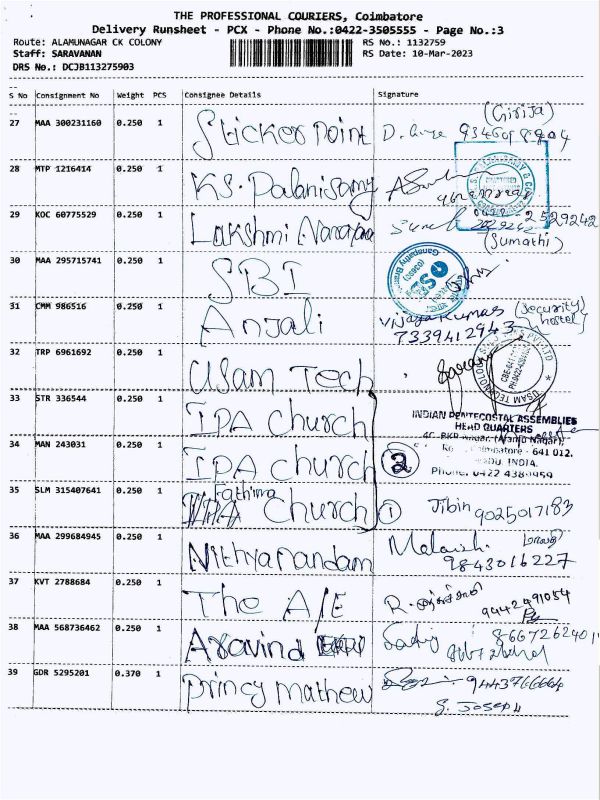 THE PROFESSIONAL COURIERS, Coimbatore
Delivery Runsheet - PCX - Phone No.:0422-3505555 - Page No.:3
Route: ALAMUNAGAR CK COLONY
RS No.: 1132759
Staff: SARAVANAN
RS Date: 10-Mar-2023
DRS No.: DCJB113275903
S No Consignment No Weight PCS Consignee Details Signature
(Girija)
27 MAA 300231160 0.250 1 Sticker point
28 MTP 1216414 0.250 1 KS. Palanisamy
29 KOC 60775529 0.250 1 Lakshmi 2529242
(Sumathi)
30 MAA 295715741 0.250 1 SBI
31 CMM 986516 0.250 1 Anjali Vijaya Kumar (Security hostel)
7339412943
32 TRP 6961692 0.250 1 Usam Tech
33 STR 336544 0.250 1 IPA Church
INDIAN PENTECOSTAL ASSEMBLIES
HEAD QUARTERS
34 MAN 243031 0.250 1 IPA Church 2
Coimbatore - 641 012.
INDIA.
35 SLM 315407641 0.250 1 Fathima Church 1 Jibin 9025017183
36 MAA 299684945 0.250 1 Nithyanandam
9843016227
37 KVT 2788684 0.250 1 The A/E R. 9442491054
38 MAA 568736462 0.250 1 Aravind 8667262401
39 GDR 5295201 0.370 1 princy mathew
S. Joseph